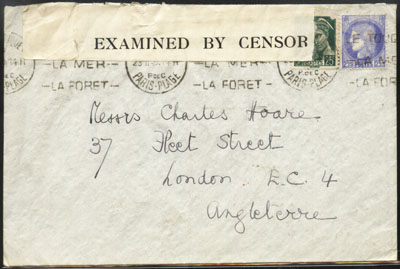 EXAMINED BY CENSOR
LE TOUQ
-LA MER- -LA MER-
PARIS-PLAGE PARIS-PLAGE
-LA FORET- -LA FORET-
Messrs Charles Hoare
37 Fleet Street
London E.C. 4
Angleterre